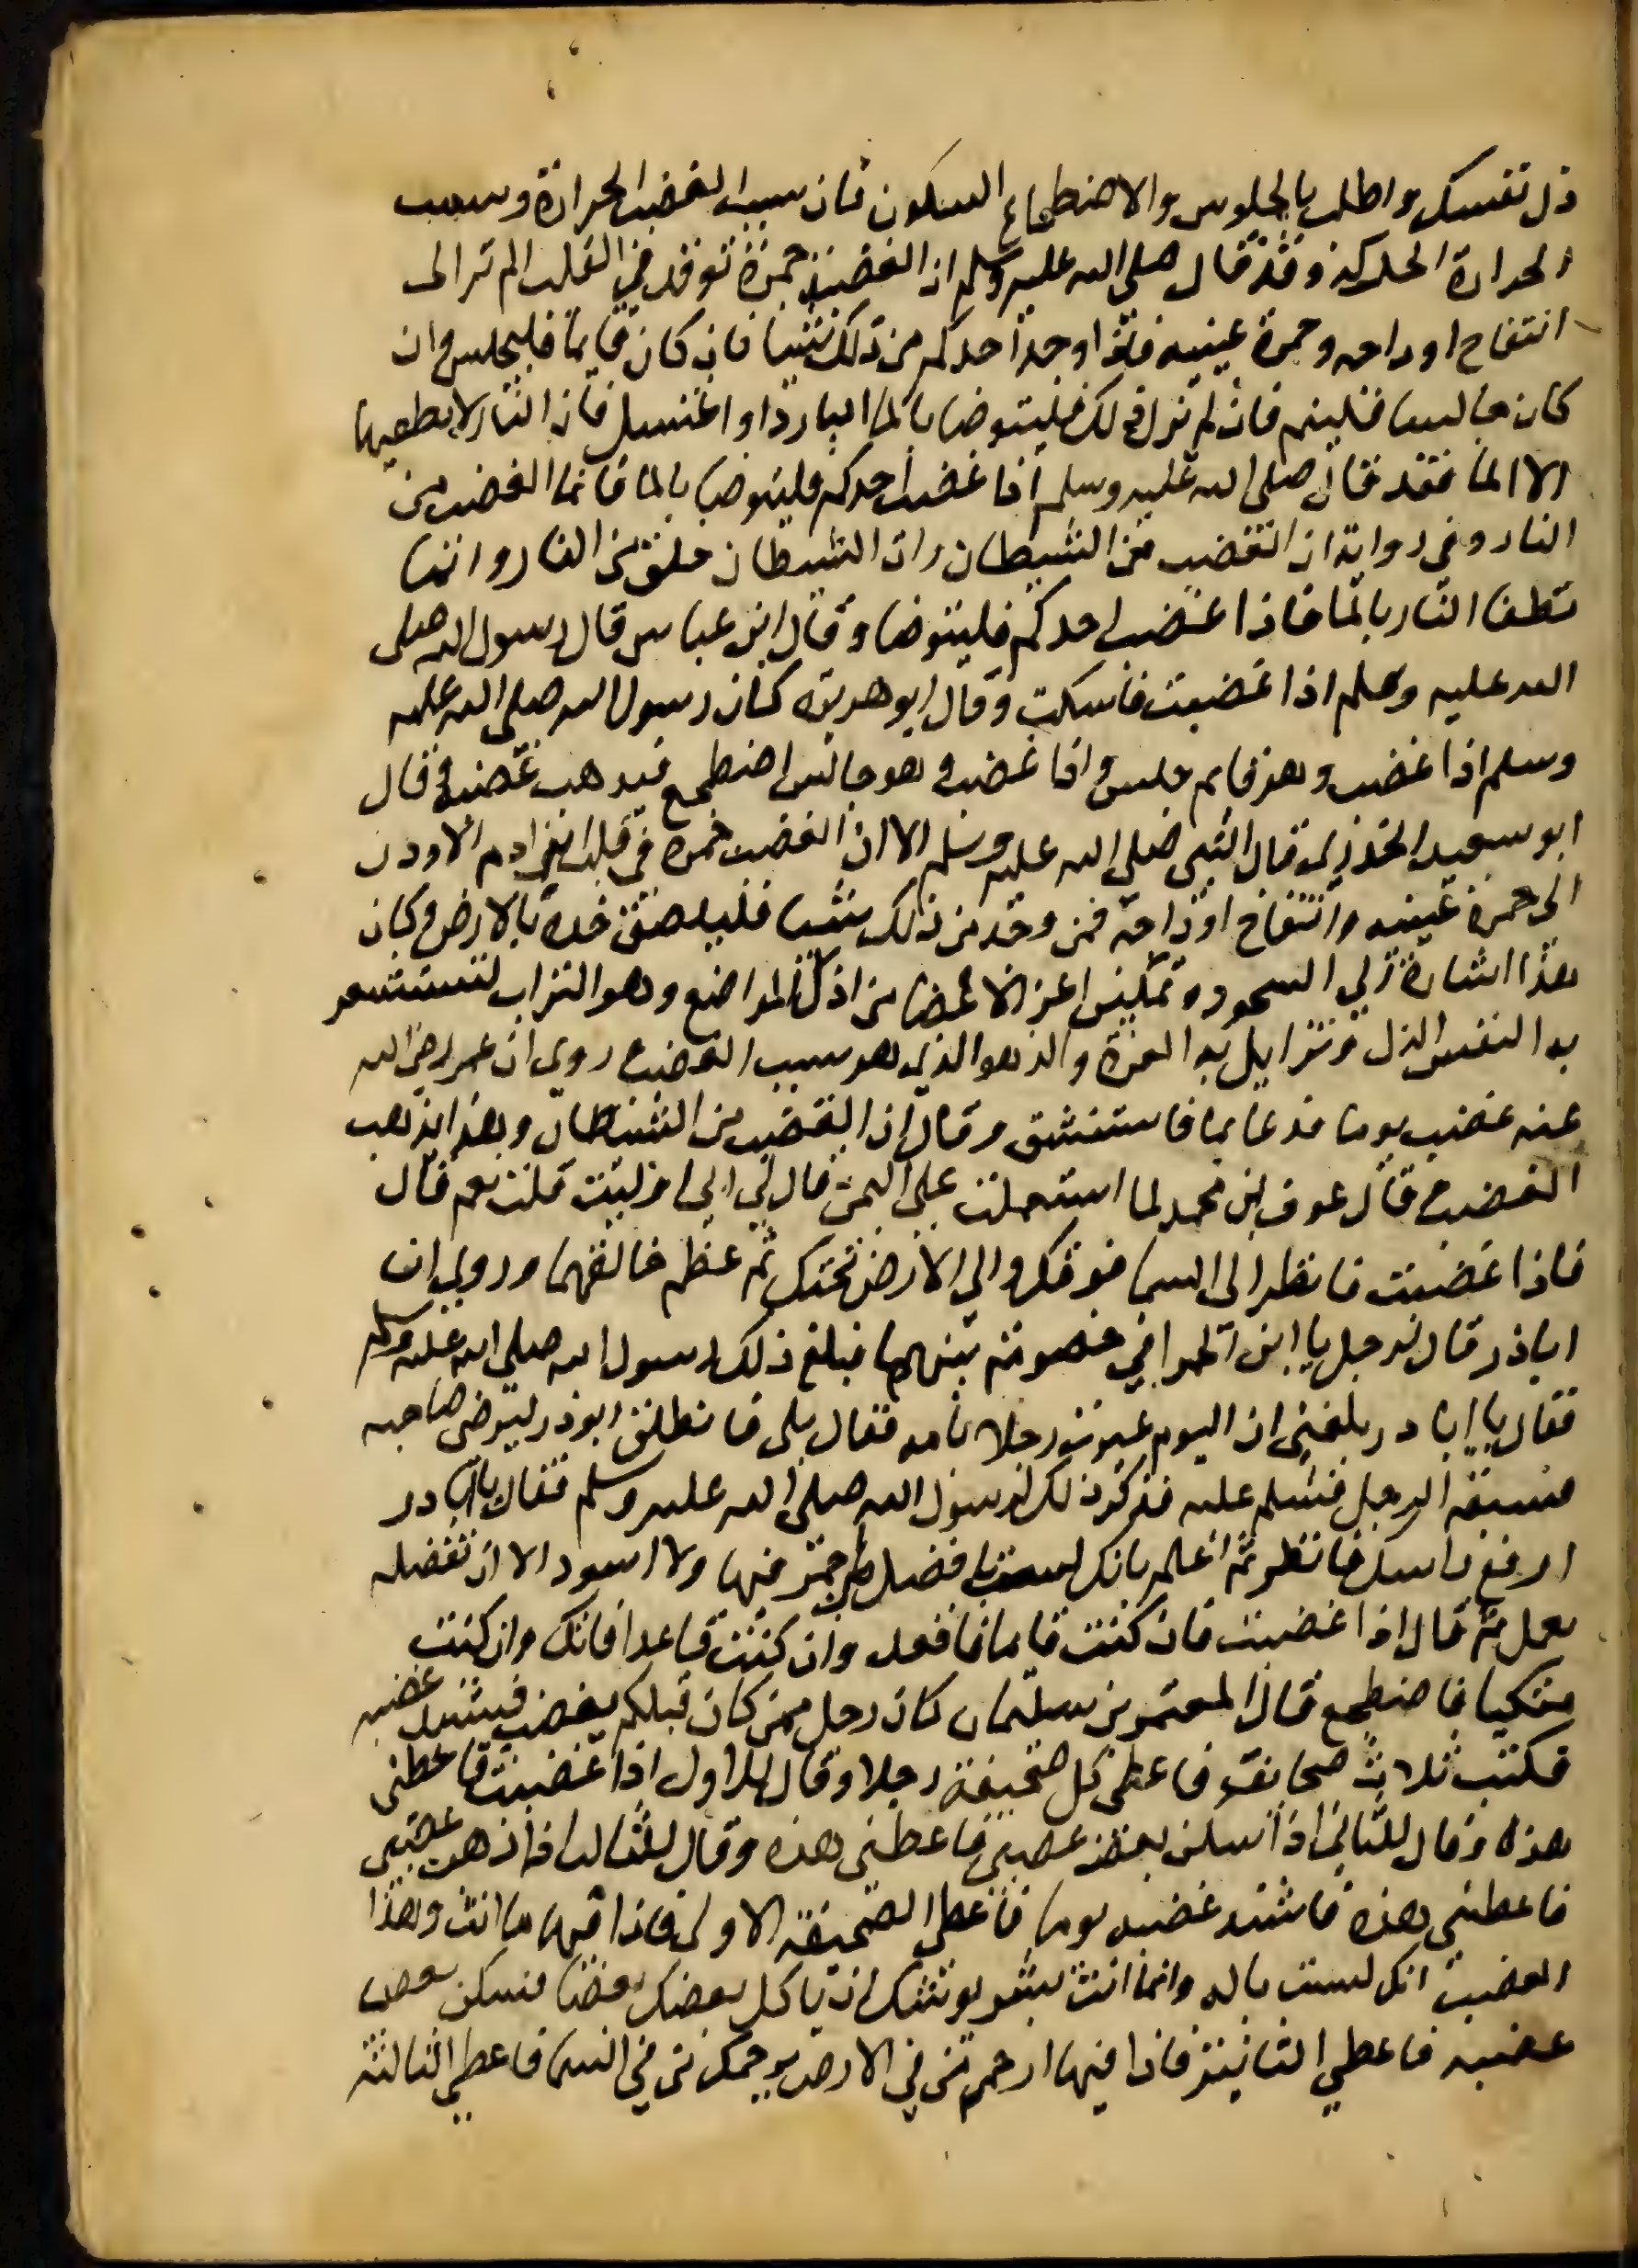 ذل نفسك واطلب بالجلوس والاضطجاع السكون فان سبب الغضب الحرارة وسبب
الحرارة الحركة وقد قال صلى الله عليه وسلم ان الغضب جمرة توقد في القلب الم تر الى
انتفاخ اوداجه وحمرة عينيه فاذا وجد احدكم من ذلك شيا فان كان قايما فليجلس وان
كان جالسا فلينم فان لم يزل ذلك فليتوضا بالما البارد او اغتسل فان النار لا يطفيها
الا الما فقد قال صلى الله عليه وسلم اذا غضب احدكم فليتوضا بالما فانما الغضب من
النار وفي رواية ان الغضب من الشيطان وان الشيطان خلق من النار وانما
تطفا النار بالما فاذا غضب احدكم فليتوضا وقال ابن عباس قال رسول الله صلى
الله عليه وسلم اذا غضبت فاسكت وقال ابو هريرة كان رسول الله صلى الله عليه
وسلم اذا غضب وهو قايم جلس واذا غضب وهو جالس اضطجع فيذهب غضبه وقال
ابو سعيد الخدري قال النبي صلى الله عليه وسلم الا ان الغضب جمرة في قلب ابن ادم الا ترون
الى حمرة عينيه وانتفاخ اوداجه فمن وجد من ذلك شيا فليلصق خده بالارض وكان
هذا اشارة الي السجود وتمكين اعز الاعضا من اذل المواضع وهو التراب لتستشعر
به النفس الذل وتزايل به العزة والزهو الذي هو سبب الغضب روي ان عمر رضي الله
عنه غضب يوما فدعا بما فاستنشق وقال ان الغضب من الشيطان وهذا يذهب
الغضب قال عوف بن محمد لما استعملت على اليمن قال لي ابي اوليت قلت نعم قال
فاذا غضبت فانظر الى السما فوقك والي الارض تحتك ثم عظم خالقهما وروي ان
اباذر قال لرجل يا ابن الحمرا في خصومة بينهما فبلغ ذلك رسول الله صلى الله عليه وسلم
فقال يا ابا در بلغني ان اليوم عيرت رجلا بامه فقال بلى فانطلق ابو ذر ليرضى صاحبه
فسبقه الرجل فسلم عليه فذكر ذلك لرسول الله صلى الله عليه وسلم فقال يا ابا در
ارفع راسك فانظر ثم اعلم بانك لست بافضل من احمر فيها ولا اسود الا ان تفضله
بعمل ثم قال اذا غضبت فان كنت قايما فاقعد وان كنت قاعدا فاتك وان كنت
متكيا فاضطجع قال المعتمر بن سليمان كان رجل ممن كان قبلكم يغضب فيشتد غضبه
فكتب ثلاث صحايف فاعطى كل صحيفة رجلا وقال للاول اذا غضبت فاعطني
هذه وقال للثاني اذا سكن بعض غضبي فاعطني هذه وقال للثالث اذا ذهب غضبي
فاعطني هذه فاشتد غضبه يوما فاعطي الصحيفة الاولى فاذا فيها ما انت وهذا
الغضب انك لست باله وانما انت بشر يوشك ان ياكل بعضك بعضا فسكن بعض
غضبه فاعطي الثانية فاذا فيها ارحم من في الارض يرحمك من في السما فاعطي الثالثة